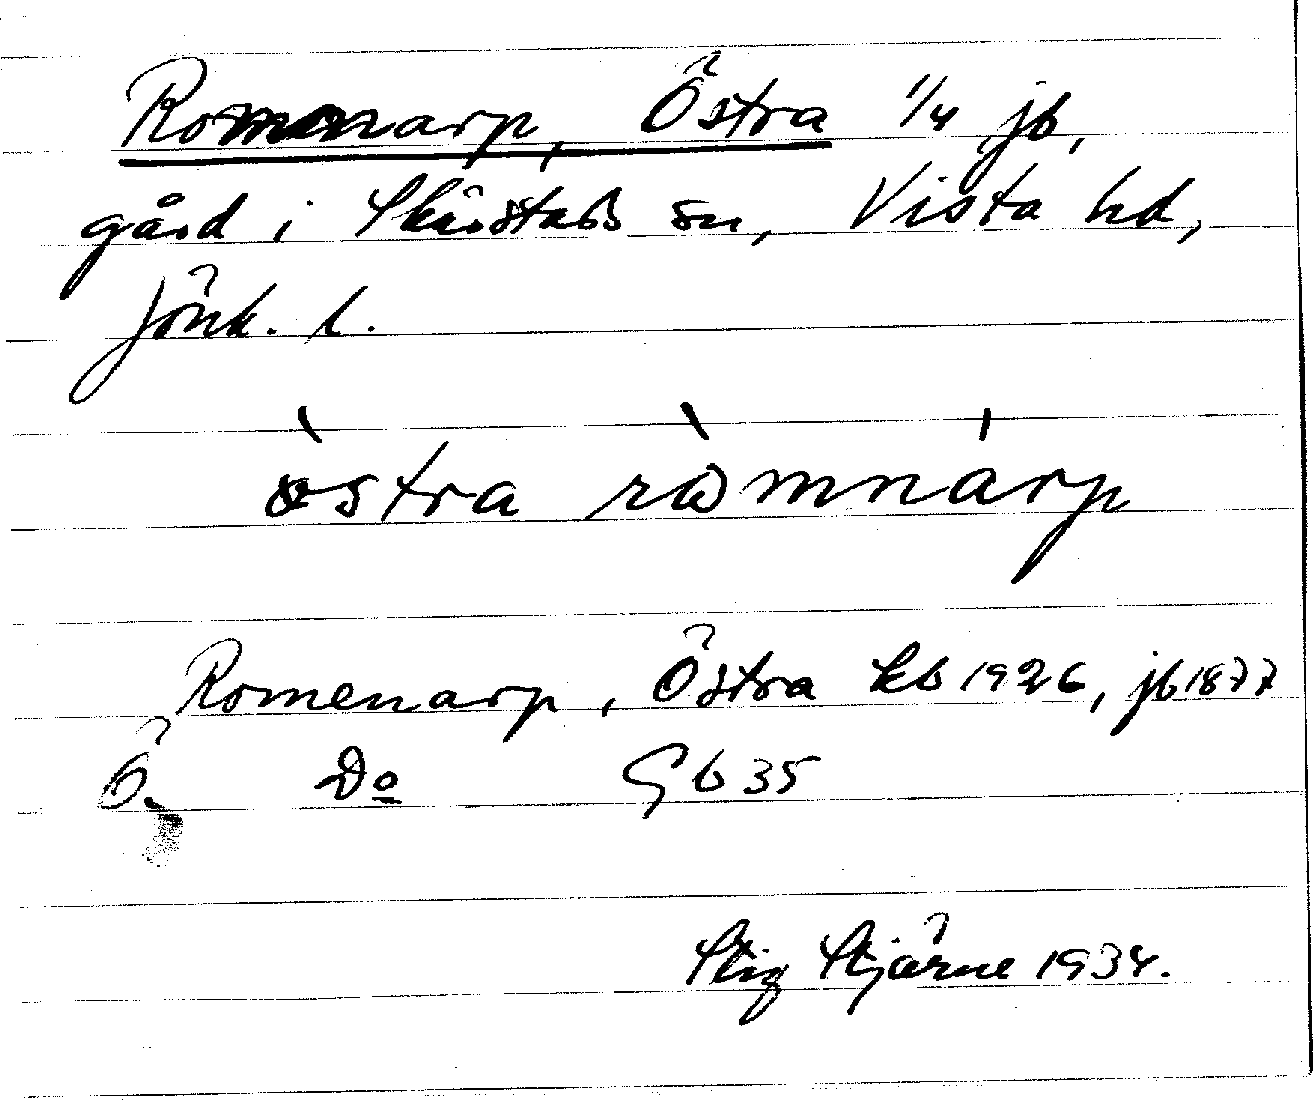 Romenarp, Östra 1/4 jb,
gård i Skärstads sn, Vista hd,
Jönk. l.
östra ròmnárp
Romenarp, Östra kb 1926, jb 1877
Ö. Do Gb 35
Stig Stjärne 1934.